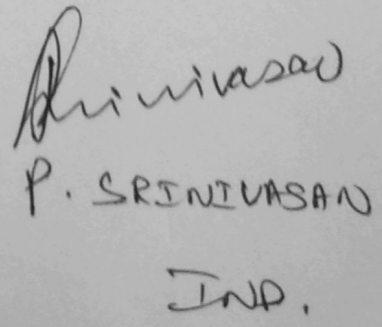 Srinivasan
P. SRINIVASAN
IND.